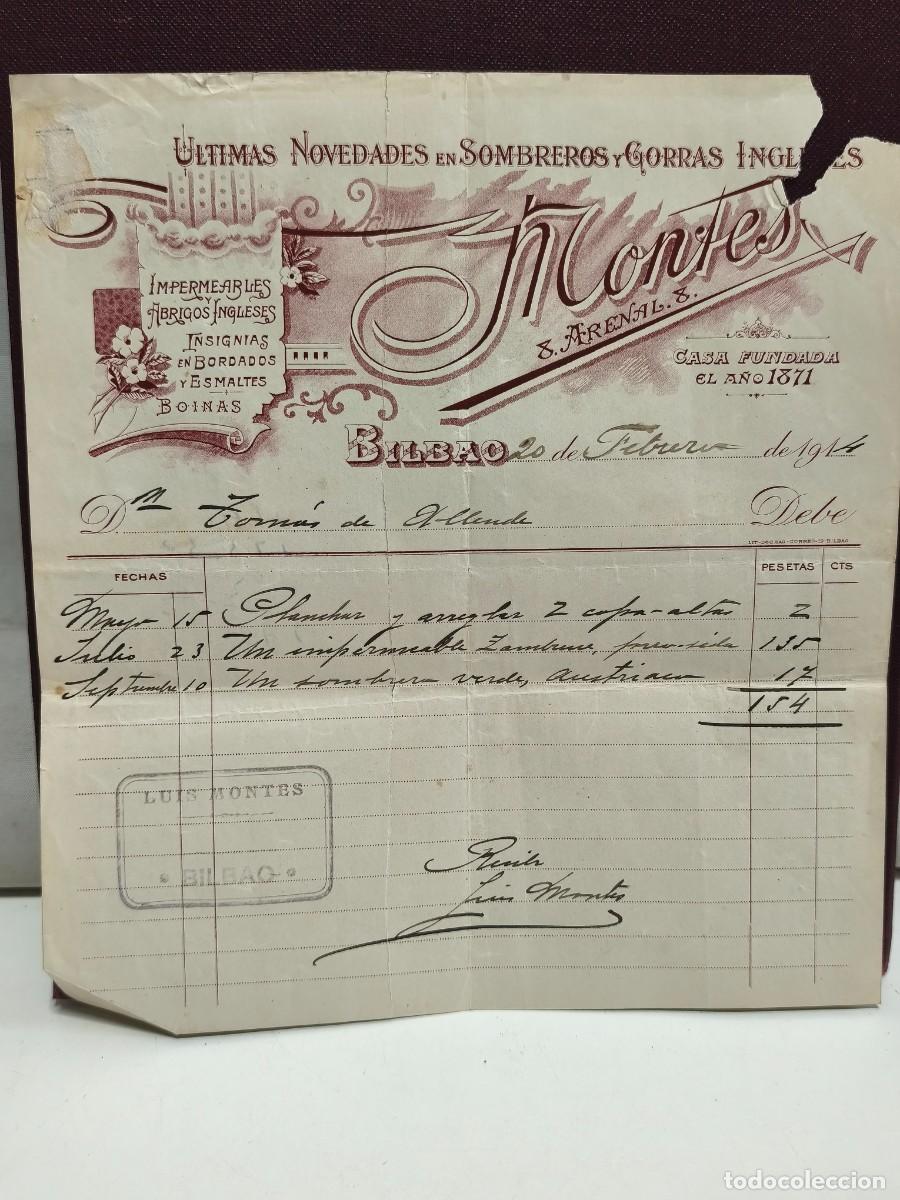 ULTIMAS NOVEDADES EN SOMBREROS Y GORRAS INGLESES
Montes
8. ARENAL. 8.
IMPERMEARLES
Y
ABRIGOS INGLESES
INSIGNIAS
EN BORDADOS
Y ESMALTES
BOINAS
CASA FUNDADA
EL AÑO 1871
BILBAO 20 de Febrero de 1914
D.n Tomás de Allende Debe
FECHAS PESETAS CTS
Mayo 15 Planchar y arreglar 2 copa-altas 2
Julio 23 Un impermeable 135
Septiembre 10 Un sombrero verde, austriaco 17
154
LUIS MONTES
BILBAO
Recibí
Luis Montes
todocoleccion